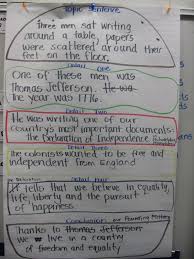 Topic Sentence
Three men sat writing
around a table, papers
were scattered around their
feet on the floor.
Detail One
One of these men was
Thomas Jefferson. He was
The year was 1776.
Detail Two
He was writing one of our
country's most important documents-
the Declaration of Independence.
Detail Three
The colonists wanted to be free and
independent from England
Detail Four
It tells that we believe in equality,
life, liberty and the pursuit
of happiness.
Conclusion our Founding Fathers
Thanks to Thomas Jefferson
we live in a country
of freedom and equality